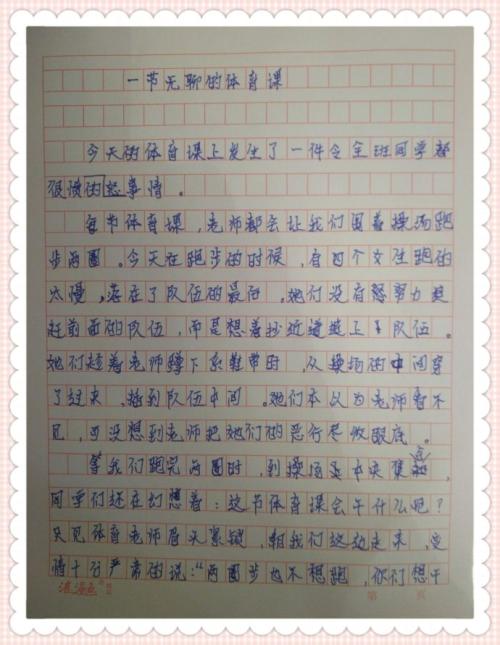 一节无聊的体育课
今天的体育课上发生了一件令全班同学都
很愤的怒事情。
每节体育课,老师都会让我们围着操场跑
步两圈。今天在跑步的时候,有四个女生跑的
太慢,落在了队伍的最后。她们没有努力
赶前面的队伍,而是想着抄近道追上队伍。
她们趁着老师蹲下系鞋带时,从操场的中间穿
了过来,插到队伍中间。她们本以为老师看不
见,可没想到老师把她们的恶行尽收眼底。
等我们跑完两圈时,到操场中央集合,
同学们还在幻想着:这节体育课会干什么呢?
只见体育老师眉头紧锁,朝我们这边走来,
情十分严肃的说:“两圈步也不想跑,你们想干
第 页